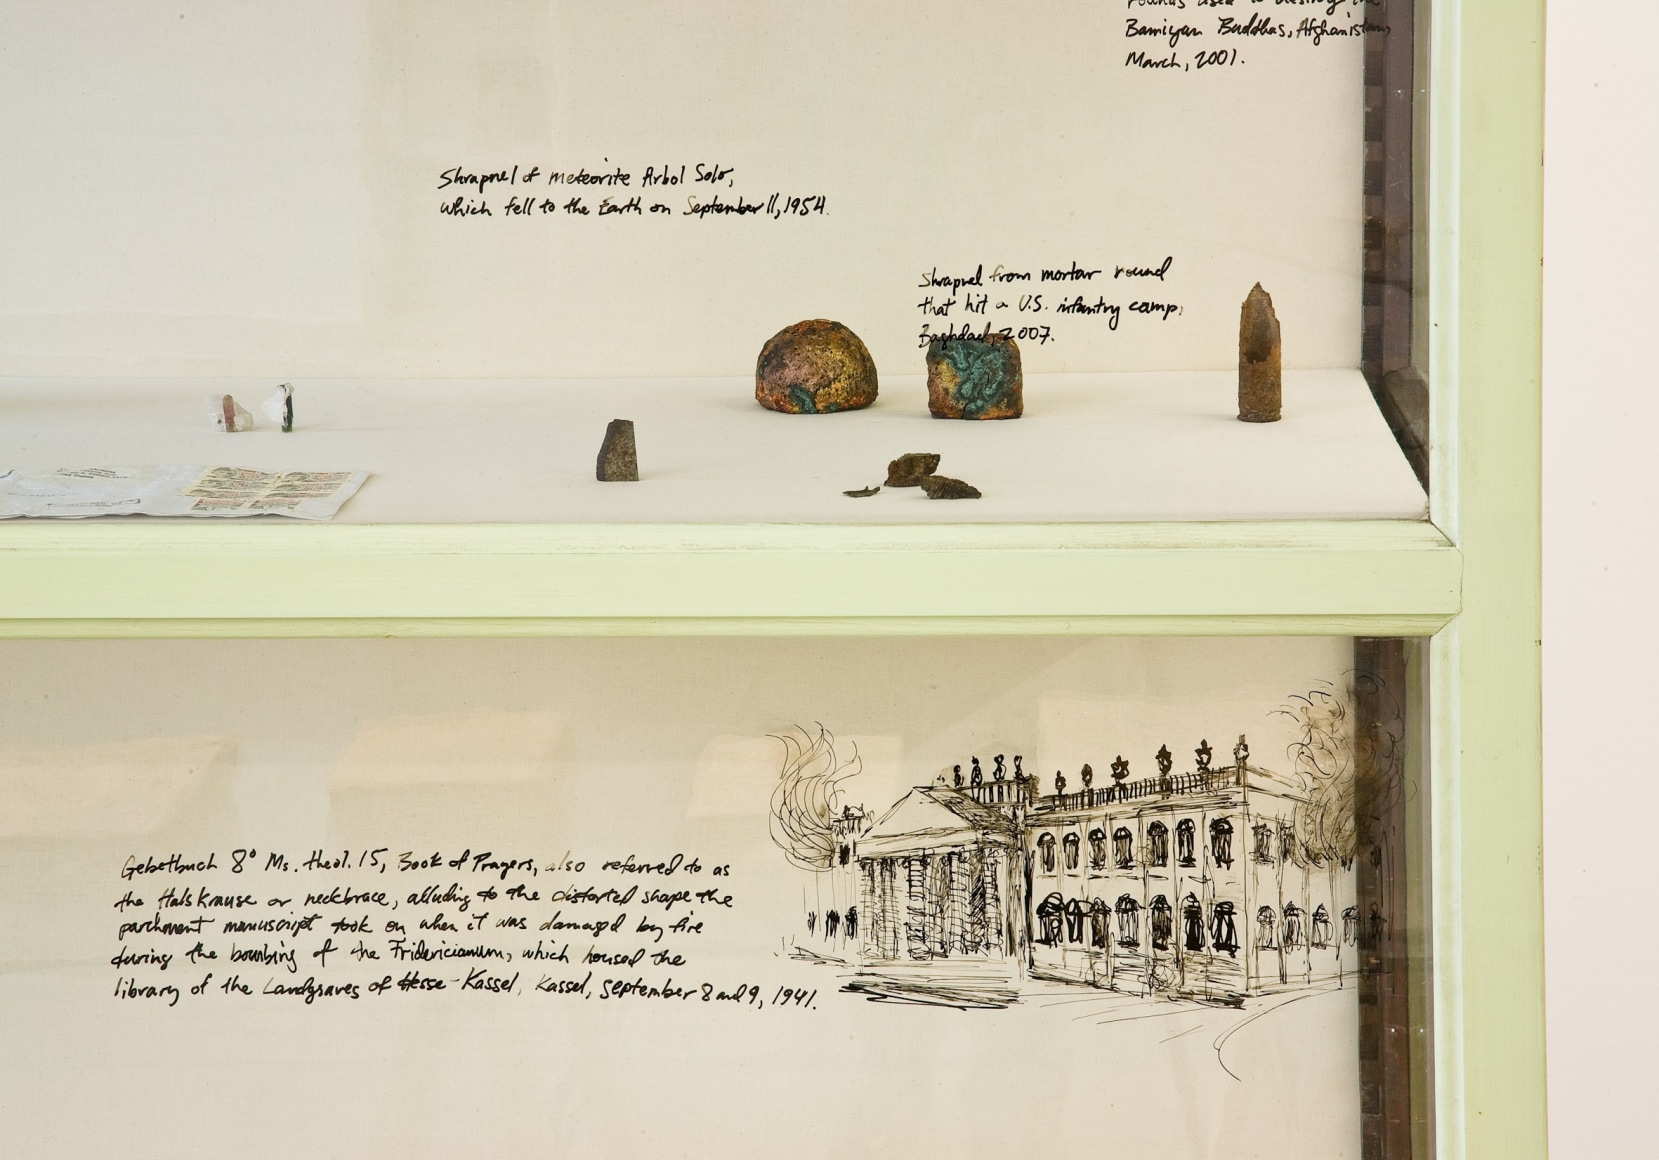 rounds used to destroy the
Bamiyan Buddhas, Afghanistan,
March, 2001.
Shrapnel of meteorite Arbol Solo,
which fell to the Earth on September 11, 1954.
Shrapnel from mortar round
that hit a U.S. infantry camp,
Baghdad, 2007.
Gebetbuch 8° Ms. theol. 15, Book of Prayers, also referred to as
the Halskrause or neckbrace, alluding to the distorted shape the
parchment manuscript took on when it was damaged by fire
during the bombing of the Fridericianum, which housed the
library of the Landgraves of Hesse-Kassel, Kassel, September 8 and 9, 1941.